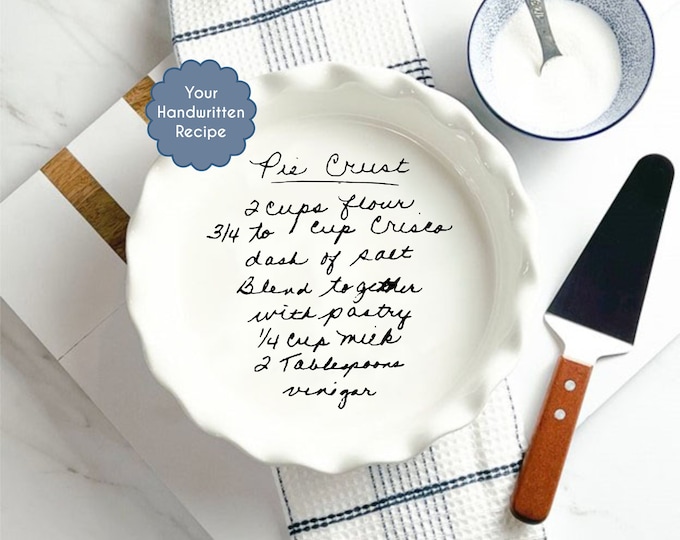 Your
Handwritten
Recipe
Pie Crust
2 cups flour
3/4 to 1 cup Crisco
dash of salt
Blend together
with pastry
1/4 cup milk
2 Tablespoons
vinigar